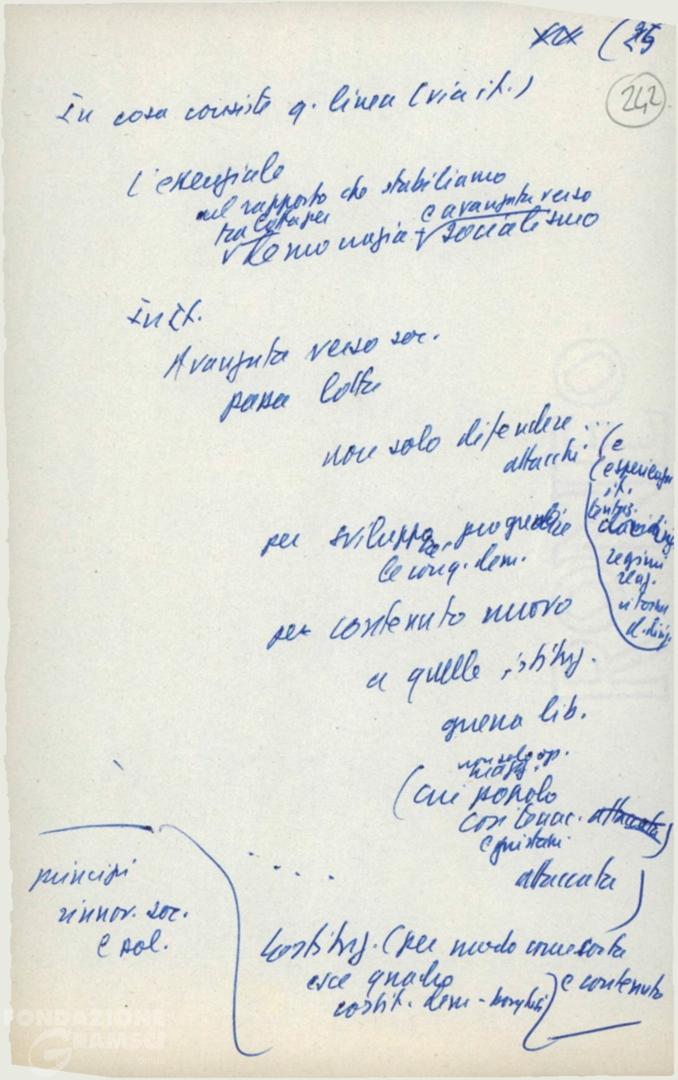 XIX (25
242
In cosa consiste q. linea (via it.)
L'essenziale
nel rapporto che stabiliamo
tra lotta per
e avanzata verso
democrazia + socialismo
In It.
Avanzata verso soc.
passa lotta
non solo difendere ...
attacchi:
(e
(esperienza
it.
classi dirig.
regimi
reaz.
ritorno
d. dirig.
per sviluppare, progredire
le conq. dem.
per contenuto nuovo
a quelle istituz.
guerra lib.
non solo op.
(cui popolo
così tenac.
e giustam.
attaccata
principi
rinnov. soc.
e pol.
Costituz. (per modo come sorta
esce quadro
e contenuto
costit. dem-borghesi)
FONDAZIONE
GRAMSCI